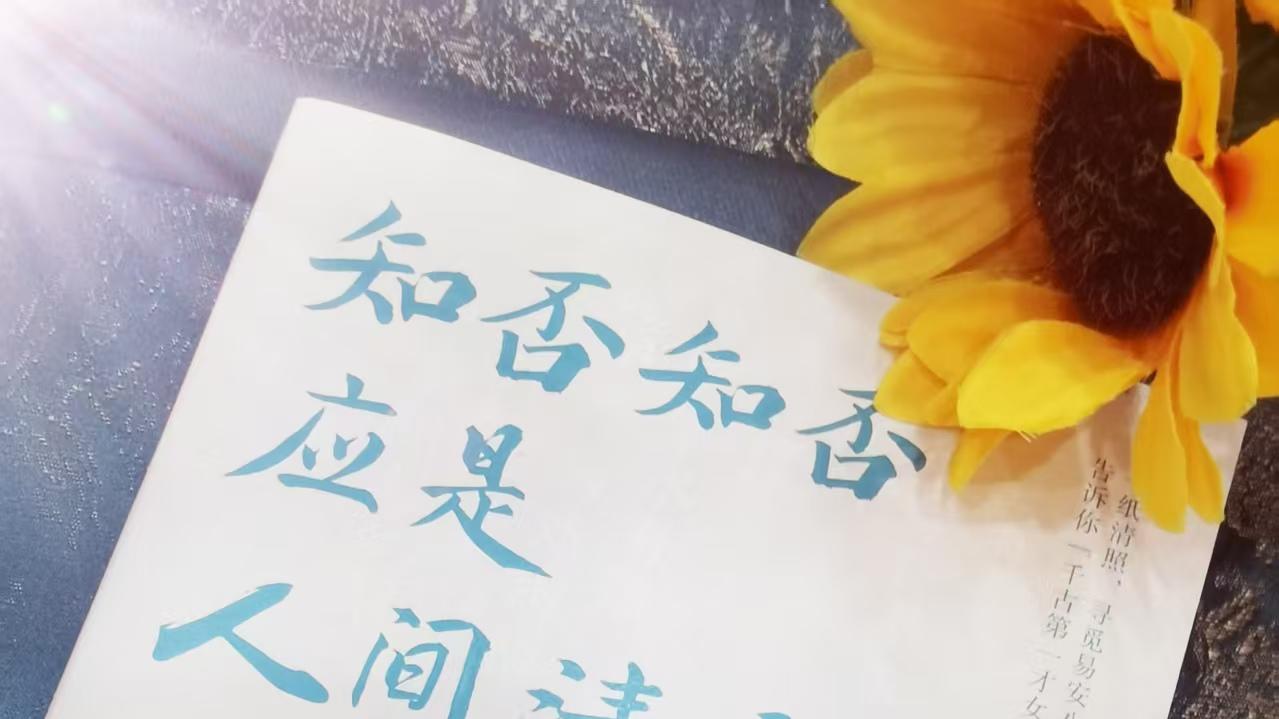 知否知否
应是
人间清
纸清照，寻觅易安
告诉你“千古第一才女